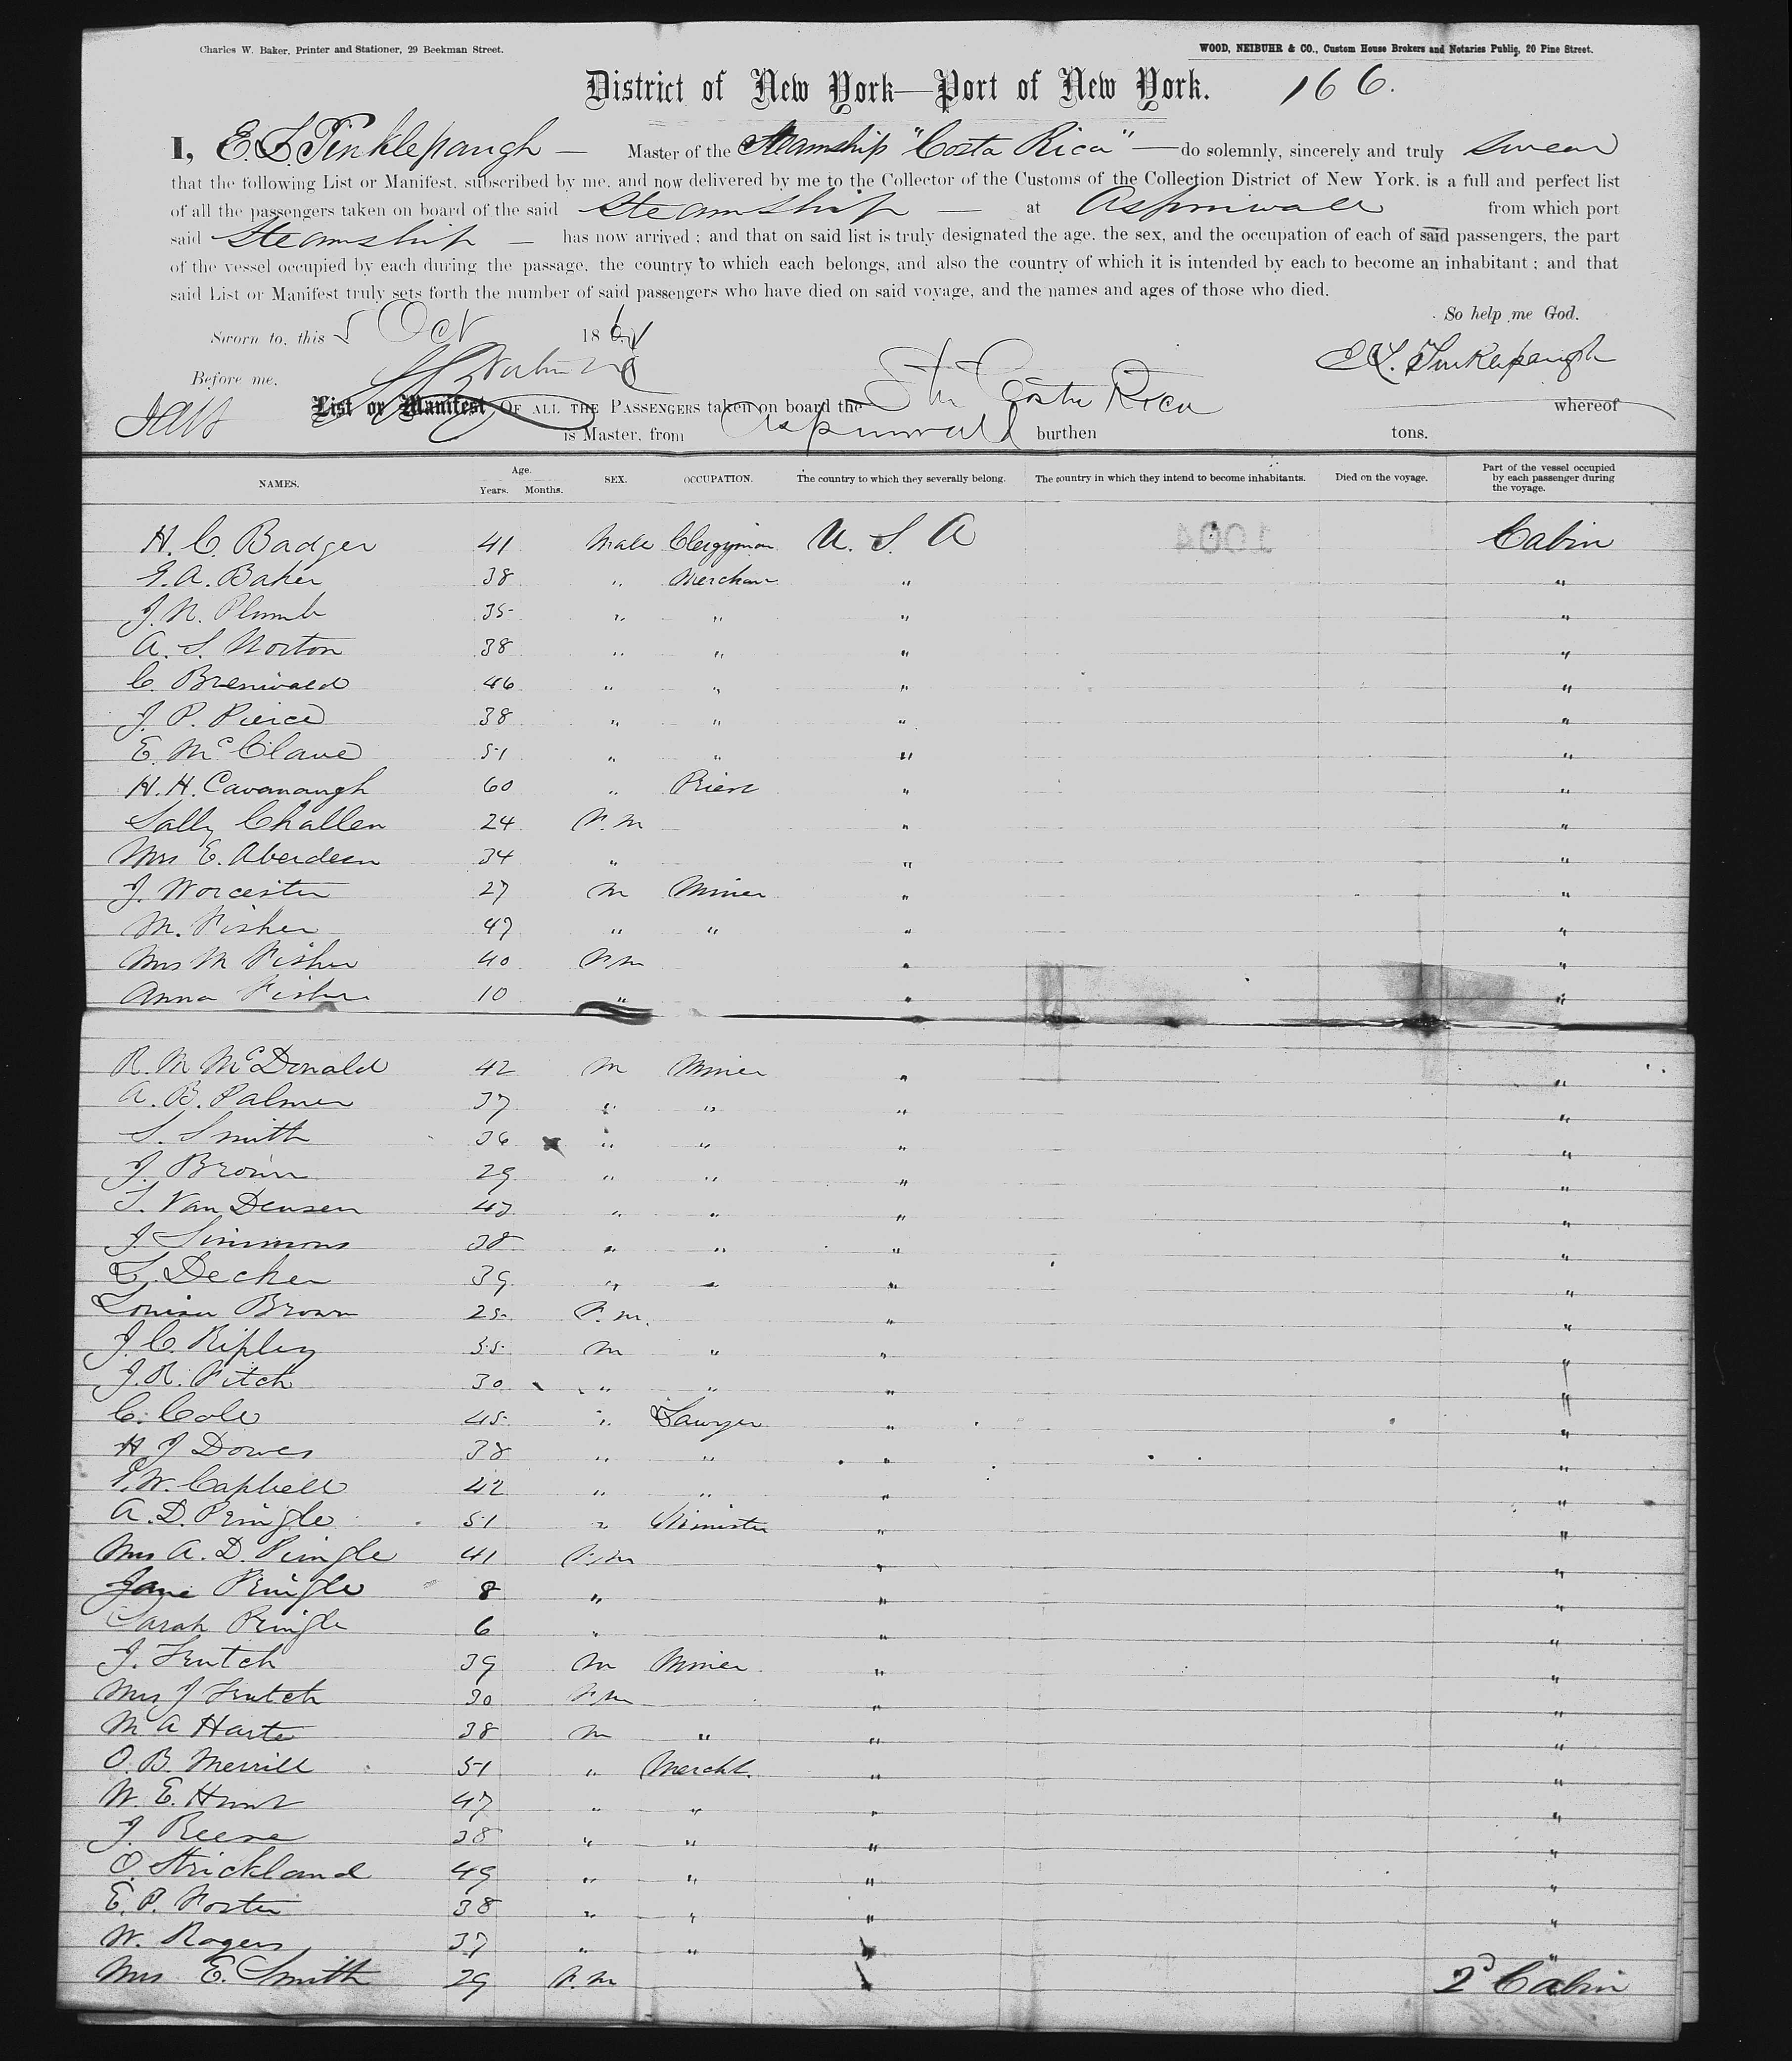 Charles W. Baker, Printer and Stationer, 29 Beekman Street.
WOOD, NEIBUHR & CO., Custom House Brokers and Notaries Public, 20 Pine Street.
District of New York—Port of New York. 166.
I, E. L. Tinklepaugh — Master of the Steamship "Costa Rica" — do solemnly, sincerely and truly swear
that the following List or Manifest, subscribed by me, and now delivered by me to the Collector of the Customs of the Collection District of New York, is a full and perfect list
of all the passengers taken on board of the said Steamship — at Aspinwall from which port
said Steamship — has now arrived; and that on said list is truly designated the age, the sex, and the occupation of each of said passengers, the part
of the vessel occupied by each during the passage, the country to which each belongs, and also the country of which it is intended by each to become an inhabitant; and that
said List or Manifest truly sets forth the number of said passengers who have died on said voyage, and the names and ages of those who died.
So help me God.
Sworn to, this 5 Oct 186
E. L. Tinklepaugh
Before me,
List or Manifest OF ALL THE PASSENGERS taken on board the Str Costa Rica whereof
is Master, from Aspinwall burthen tons.
NAMES. Age. Years. Months. SEX. OCCUPATION. The country to which they severally belong. The country in which they intend to become inhabitants. Died on the voyage. Part of the vessel occupied by each passenger during the voyage.
H. C. Badger 41 Male Clergyman U. S. A Cabin
G. A. Baker 38 " Merchant " "
J. N. Plumb 35 " " " "
A. S. Norton 38 " " " "
C. Brenwald 46 " " " "
J. P. Pierce 38 " " " "
E. McClave 51 " " " "
H. H. Cavanaugh 60 " Priest " "
Sally Challen 24 F.m " "
Mrs E. Aberdeen 34 " " "
J. Worcester 27 m Miner " "
M. Fisher 47 " " " "
Mrs M Fisher 40 Fm " "
Anna Fisher 10 " " "
R. M McDonald 42 m Miner " "
A. B. Palmer 37 " " " "
S. Smith 36 " " " "
J. Brown 29 " " " "
S. Van Deusen 47 " " " "
J. Simmons 38 " " " "
L. Decker 39 " " " "
Louisa Brown 25 F.m. " "
J. C. Ripley 55 m " " "
J. R. Fitch 30 " " " "
C. Cole 45 " Lawyer " "
H J Dowes 38 " " " "
P. W. Caphell 42 " " " "
A. D. Pringle 51 " Minister " "
Mrs A. D. Pringle 41 Fm " "
Jane Pringle 8 " " "
Sarah Pringle 6 " " "
J. Leutch 39 m Miner " "
Mrs J Leutch 30 Fm " "
M A Harte 38 m " " "
O. B. Merrill 51 " Mercht. " "
W. E. Hunt 47 " " " "
J. Reese 38 " " " "
O. Strickland 49 " " " "
E. P. Foster 38 " " " "
W. Rogers 37 " " " "
Mrs E. Smith 29 F.m " 2d Cabin